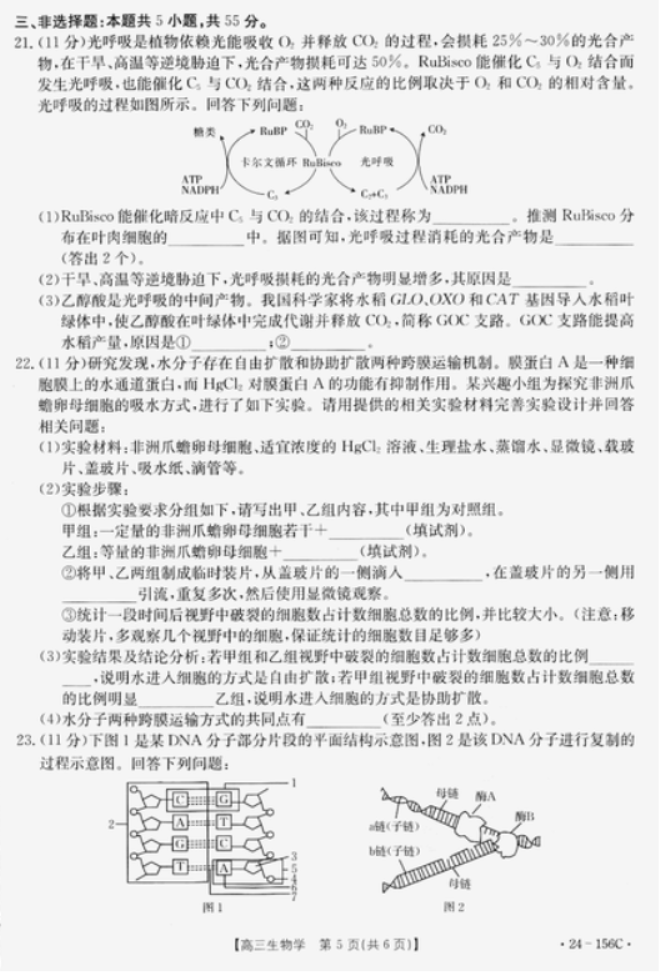 三、非选择题:本题共5小题,共55分。
21.(11分)光呼吸是植物依赖光能吸收O₂并释放CO₂的过程,会损耗25%~30%的光合产
物,在干旱、高温等逆境胁迫下,光合产物损耗可达50%。RuBisco能催化C₅与O₂结合而
发生光呼吸,也能催化C₅与CO₂结合,这两种反应的比例取决于O₂和CO₂的相对含量。
光呼吸的过程如图所示。回答下列问题:
糖类 RuBP CO₂ O₂ RuBP CO₂
卡尔文循环 RuBisco 光呼吸
ATP NADPH C₃ C₂+C₃ ATP NADPH
(1)RuBisco能催化暗反应中C₅与CO₂的结合,该过程称为________。推测RuBisco分
布在叶肉细胞的________中。据图可知,光呼吸过程消耗的光合产物是________
(答出2个)。
(2)干旱、高温等逆境胁迫下,光呼吸损耗的光合产物明显增多,其原因是________。
(3)乙醇酸是光呼吸的中间产物。我国科学家将水稻GLO、OXO和CAT基因导入水稻叶
绿体中,使乙醇酸在叶绿体中完成代谢并释放CO₂,简称GOC支路。GOC支路能提高
水稻产量,原因是①________;②________。
22.(11分)研究发现,水分子存在自由扩散和协助扩散两种跨膜运输机制。膜蛋白A是一种细
胞膜上的水通道蛋白,而HgCl₂对膜蛋白A的功能有抑制作用。某兴趣小组为探究非洲爪
蟾卵母细胞的吸水方式,进行了如下实验。请用提供的相关实验材料完善实验设计并回答
相关问题:
(1)实验材料:非洲爪蟾卵母细胞、适宜浓度的HgCl₂溶液、生理盐水、蒸馏水、显微镜、载玻
片、盖玻片、吸水纸、滴管等。
(2)实验步骤:
①根据实验要求分组如下,请写出甲、乙组内容,其中甲组为对照组。
甲组:一定量的非洲爪蟾卵母细胞若干+________(填试剂)。
乙组:等量的非洲爪蟾卵母细胞+________(填试剂)。
②将甲、乙两组制成临时装片,从盖玻片的一侧滴入________,在盖玻片的另一侧用
________引流,重复多次,然后使用显微镜观察。
③统计一段时间后视野中破裂的细胞数占计数细胞总数的比例,并比较大小。(注意:移
动装片,多观察几个视野中的细胞,保证统计的细胞数目足够多)
(3)实验结果及结论分析:若甲组和乙组视野中破裂的细胞数占计数细胞总数的比例____
____,说明水进入细胞的方式是自由扩散;若甲组视野中破裂的细胞数占计数细胞总数
的比例明显________乙组,说明水进入细胞的方式是协助扩散。
(4)水分子两种跨膜运输方式的共同点有________(至少答出2点)。
23.(11分)下图1是某DNA分子部分片段的平面结构示意图,图2是该DNA分子进行复制的
过程示意图。回答下列问题:
1
C G
2 A T
G C
T A
3
5
4
6
7
图1
母链 酶A
酶B
a链(子链)
b链(子链)
母链
图2
【高三生物学 第5页(共6页)】
·24-156C·